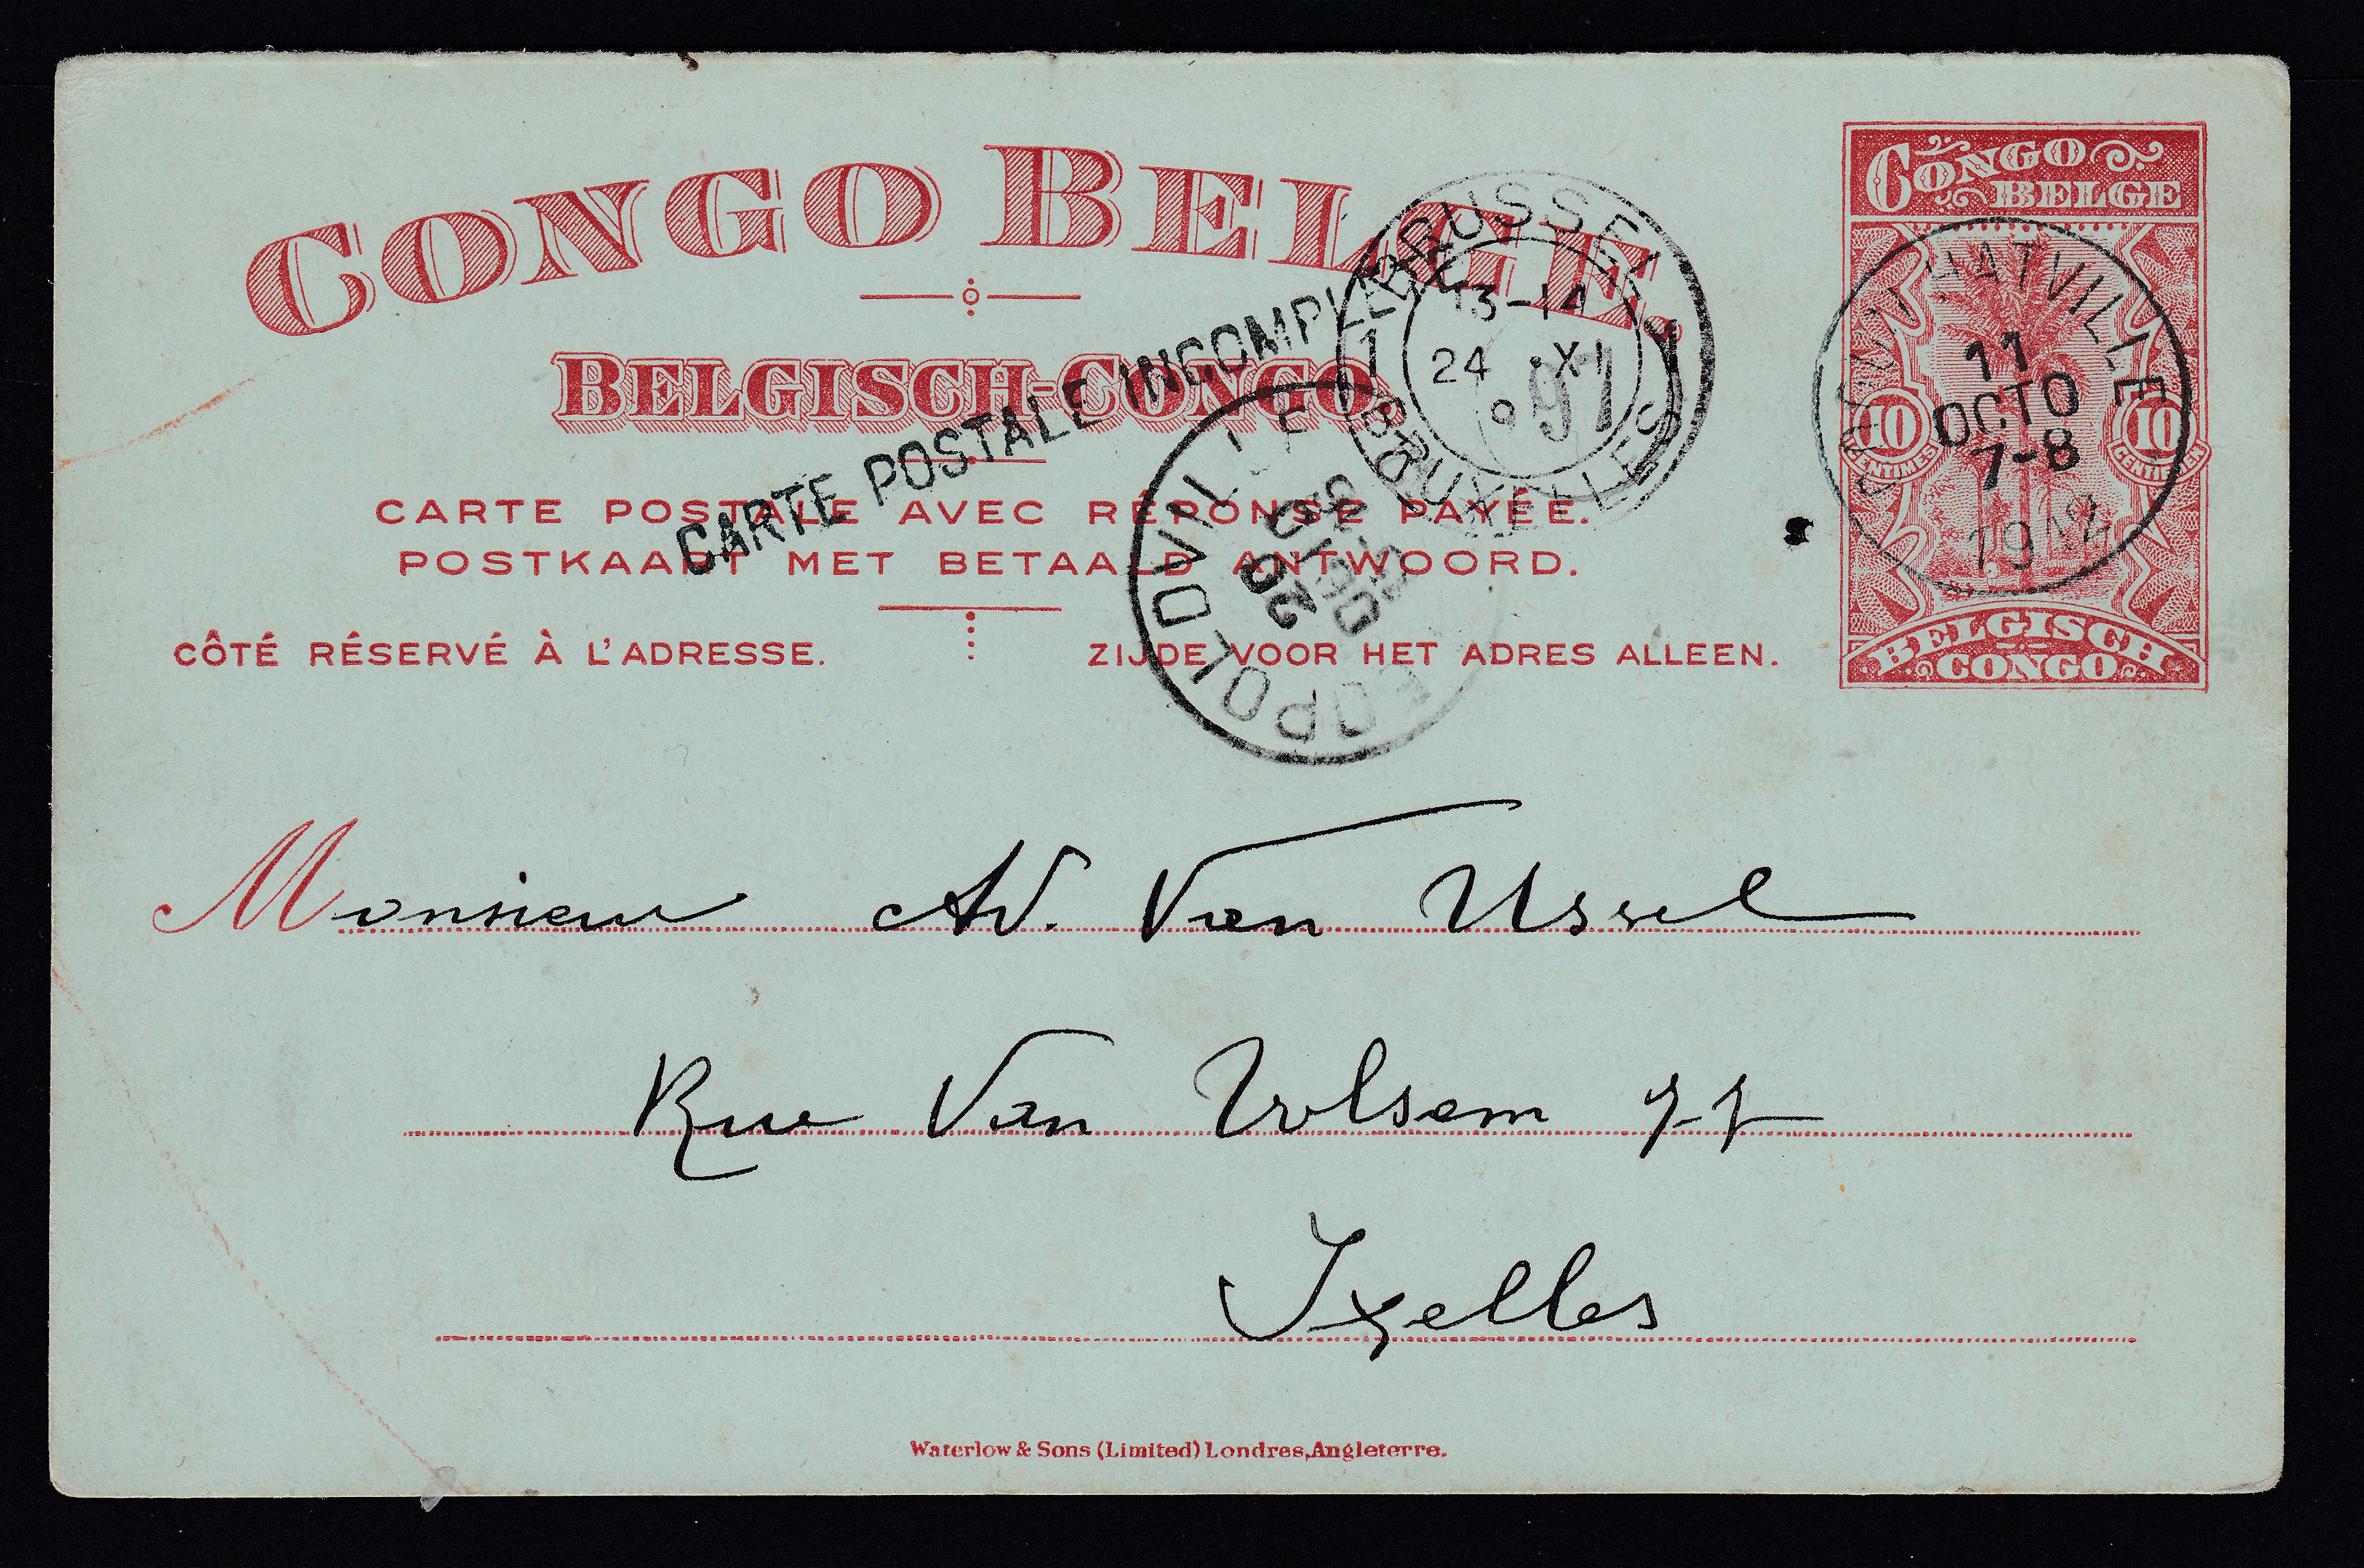 CONGO BELGE.
BELGISCH-CONGO.
CARTE POSTALE AVEC RÉPONSE PAYÉE.
POSTKAART MET BETAALD ANTWOORD.
CÔTÉ RÉSERVÉ À L'ADRESSE.
ZIJDE VOOR HET ADRES ALLEEN.
CARTE POSTALE INCOMPLÈTE
BRUSSEL
1 1
13-14
24 XI
BRUXELLES
LEOPOLDVILLE
CONGO BELGE
10 CENTIMES
10 CENTIEMEN
BELGISCH CONGO
11
OCTO
7-8
Monsieur Av. Van Ussel
Rue Van Volsem 77
Ixelles
Waterlow & Sons (Limited) Londres, Angleterre.